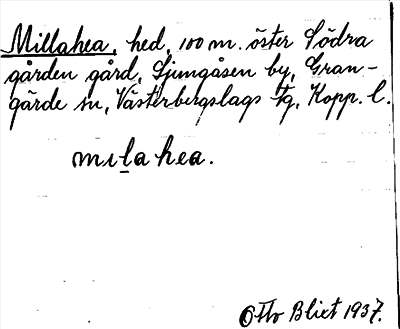 Millahea, hed, 100 m. öster Södra
gården gård, Ljungåsen by, Gran-
gärde sn, Västerbergslags tg, Kopp. l.
mıl̲a hea.
Otto Blixt 1937.